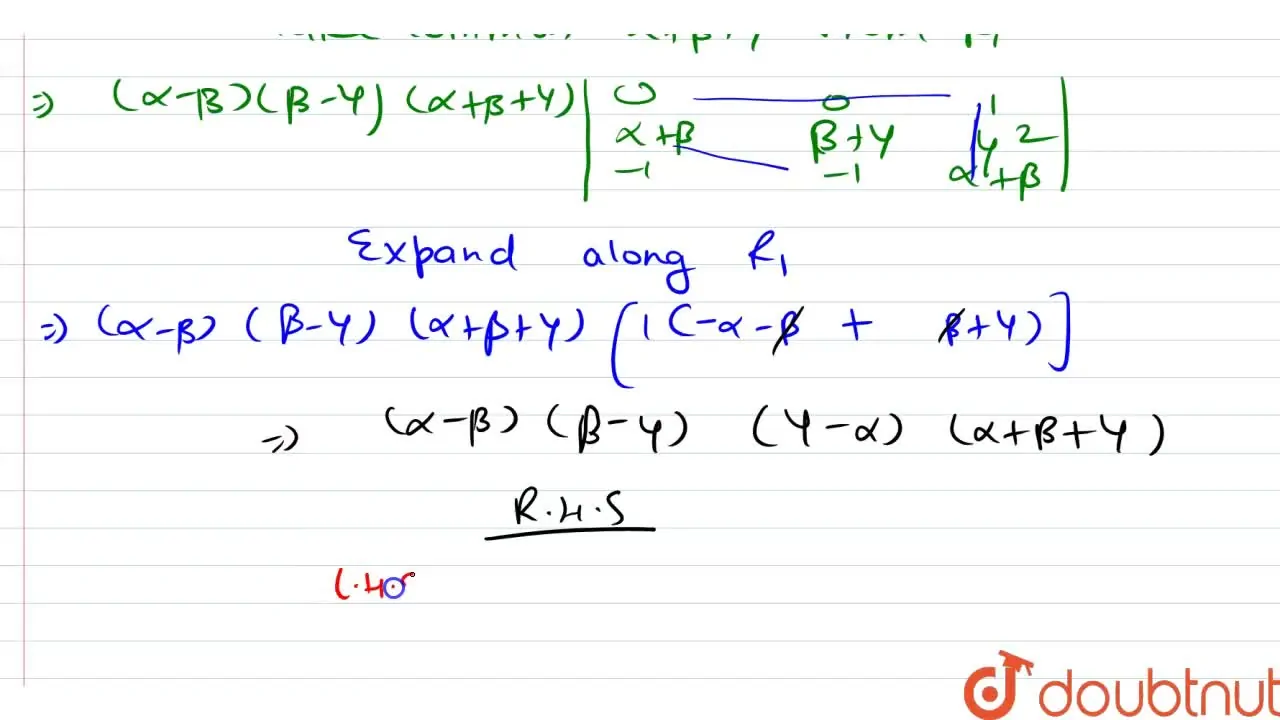 ⇒ (α-β)(β-γ)(α+β+γ) | 0 0 1
α+β β+γ γ2
-1 -1 α+β |
Expand along R1
⇒ (α-β) (β-γ) (α+β+γ) [1(-α-β + β+γ)]
⇒ (α-β) (β-γ) (γ-α) (α+β+γ)
R.H.S
doubtnut